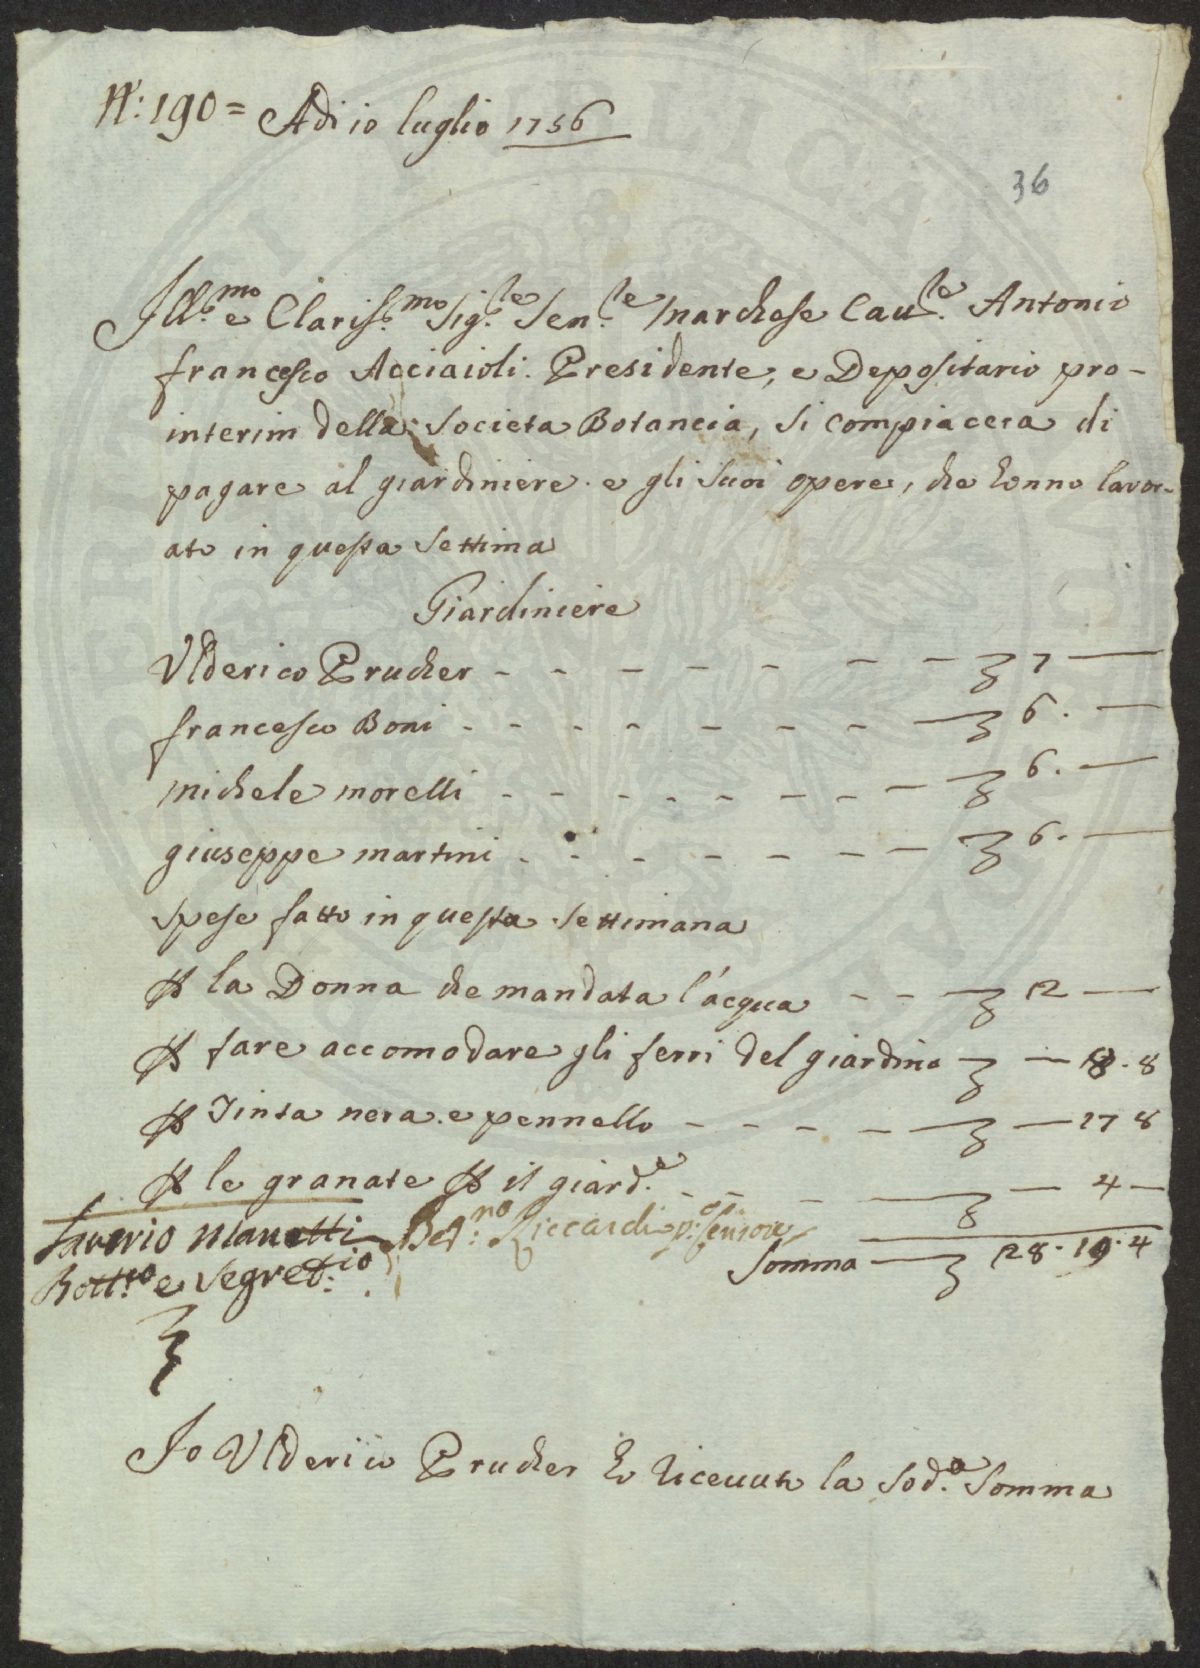 N.: 190 = Adi 10 luglio 1756
36
Ill.mo e Clariss.mo Sig.re Sen.re Marchese Cav.re Antonio
francesco Acciaioli. Presidente, e Depositario pro-
interim della Societa Botancia, si compiacera di
pagare al giardiniere e gli suoi opere, che honno lavor-
ato in questa settima
Giardiniere
Ulderico Prucher - - - - - - - 7 —
francesco Boni - - - - - - - - 6. —
michele morelli - - - - - - - - 6. —
giuseppe martini - - - - - - - 6. —
spese fatto in questa settimana
P la Donna che mandata l'acqua - - - 2 —
P fare accomodare gli ferri del giardino — 8. 8
P Tinta nera e pennello - - - - - — 17 8
P le granate P il giard.e - - - - — 4 —
Saverio Manetti Bot.no Riccardi p.o Censore
Bott.co e Segret.io
Somma — 28. 10. 4
Io Ulderico Prucher ho riceuuto la Sod.a Somma